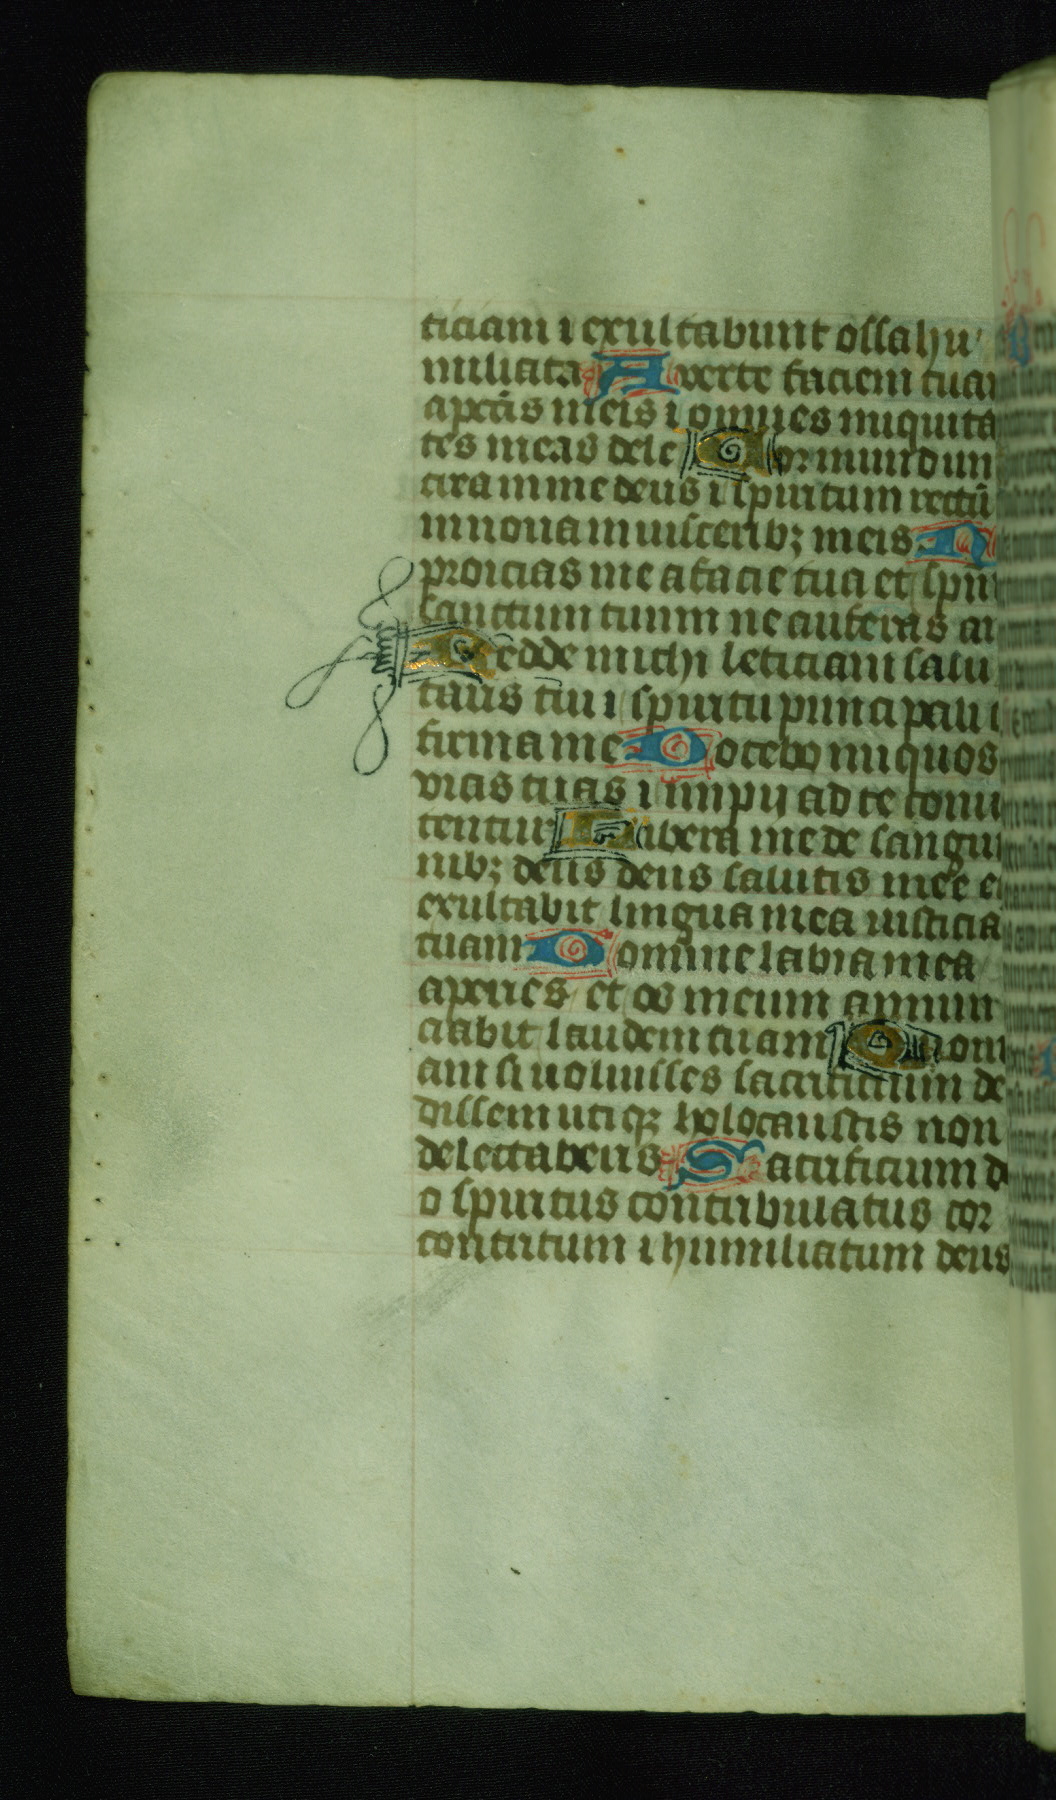 ticiam ⁊ exultabunt ossa hu
miliata Auerte faciem tuam
a pctis meis ⁊ omnes iniquita
tes meas dele Cor mundum
crea in me deus ⁊ spiritum rectū
innoua in uisceribꝫ meis Ne
proicias me a facie tua et spm
sanctum tuum ne auferas a
Redde michi leticiam salu
taris tui ⁊ spiritu principali
firma me Docebo iniquos
vias tuas ⁊ impij ad te conu
tentur Libera me de sangui
nibꝫ deus deus salutis mee et
exultabit lingua mea iusticiā
tuam Domine labia mea
aperies et os meum annun
ciabit laudem tuam Quoni
am si uoluisses sacrificium de
dissem utiqꝫ holocaustis non
delectaberis Sacrificium de
o spiritus contribulatus cor
contritum ⁊ humiliatum deus